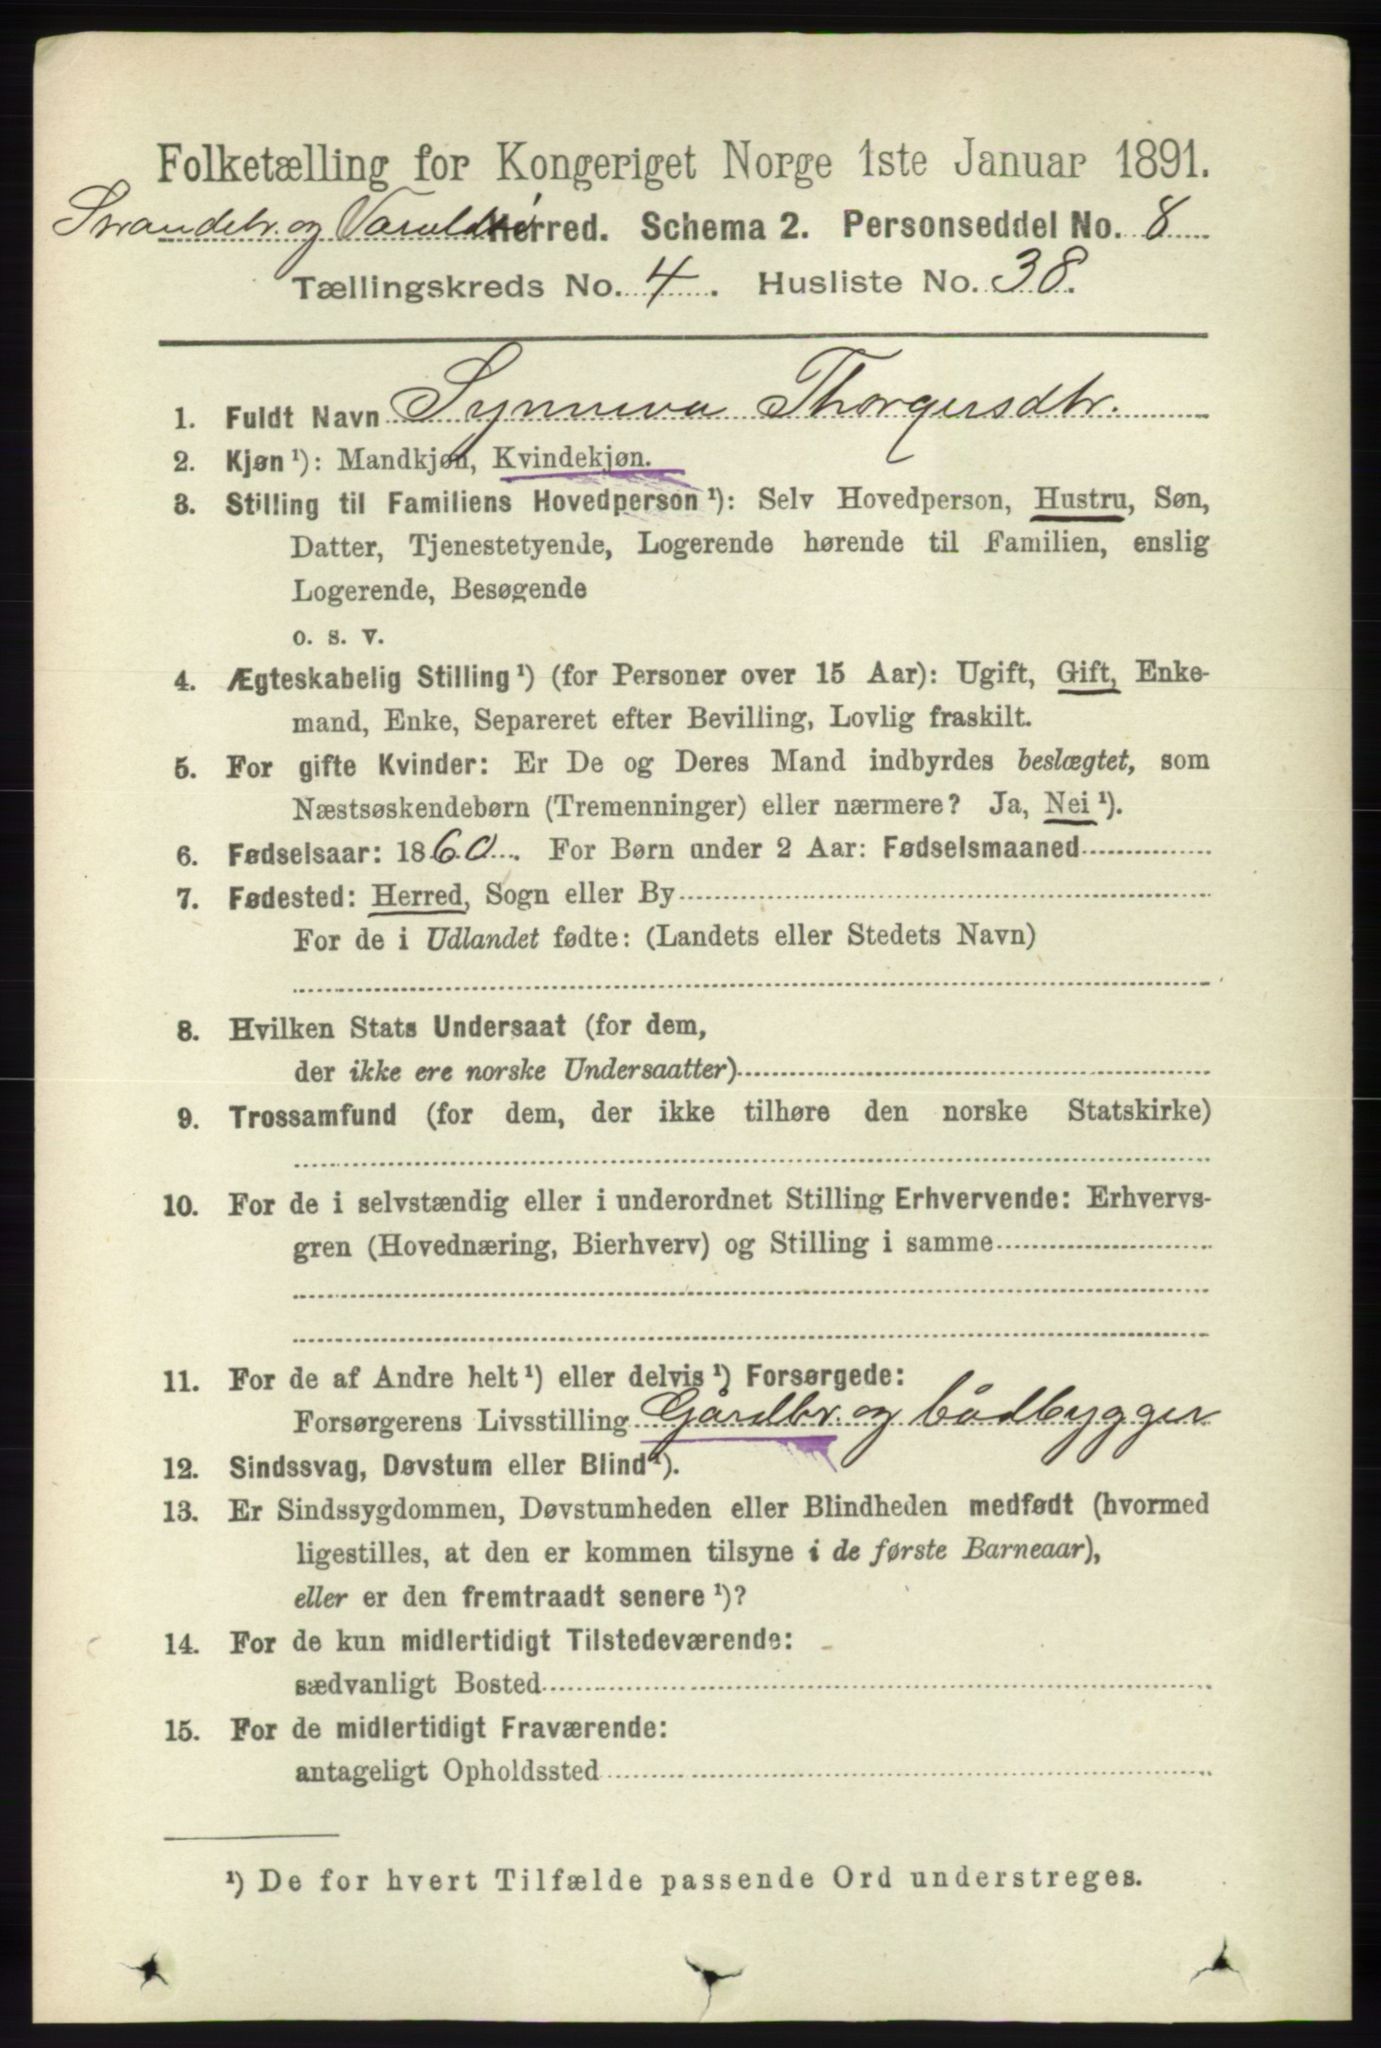 Folketælling for Kongeriget Norge 1ste Januar 1891.
Strandebr. og Varaldsø Herred. Schema 2. Personseddel No. 8
Tællingskreds No. 4. Husliste No. 38.
1. Fuldt Navn Synneva Thorgersdtr.
2. Kjøn ¹): Mandkjøn, Kvindekjøn.
3. Stilling til Familiens Hovedperson ¹): Selv Hovedperson, Hustru, Søn,
Datter, Tjenestetyende, Logerende hørende til Familien, enslig
Logerende, Besøgende
o. s. v.
4. Ægteskabelig Stilling ¹) (for Personer over 15 Aar): Ugift, Gift, Enke-
mand, Enke, Separeret efter Bevilling, Lovlig fraskilt.
5. For gifte Kvinder: Er De og Deres Mand indbyrdes beslægtet, som
Næstsøskendebørn (Tremenninger) eller nærmere? Ja, Nei ¹).
6. Fødselsaar: 1860. For Børn under 2 Aar: Fødselsmaaned
7. Fødested: Herred, Sogn eller By
For de i Udlandet fødte: (Landets eller Stedets Navn)
8. Hvilken Stats Undersaat (for dem,
der ikke ere norske Undersaatter)
9. Trossamfund (for dem, der ikke tilhøre den norske Statskirke)
10. For de i selvstændig eller i underordnet Stilling Erhvervende: Erhvervs-
gren (Hovednæring, Bierhverv) og Stilling i samme
11. For de af Andre helt ¹) eller delvis ¹) Forsørgede:
Forsørgerens Livsstilling Gårdbr. og bådbygger
12. Sindssvag, Døvstum eller Blind ¹).
13. Er Sindssygdommen, Døvstumheden eller Blindheden medfødt (hvormed
ligestilles, at den er kommen tilsyne i de første Barneaar),
eller er den fremtraadt senere ¹)?
14. For de kun midlertidigt Tilstedeværende:
sædvanligt Bosted
15. For de midlertidigt Fraværende:
antageligt Opholdssted
¹) De for hvert Tilfælde passende Ord understreges.